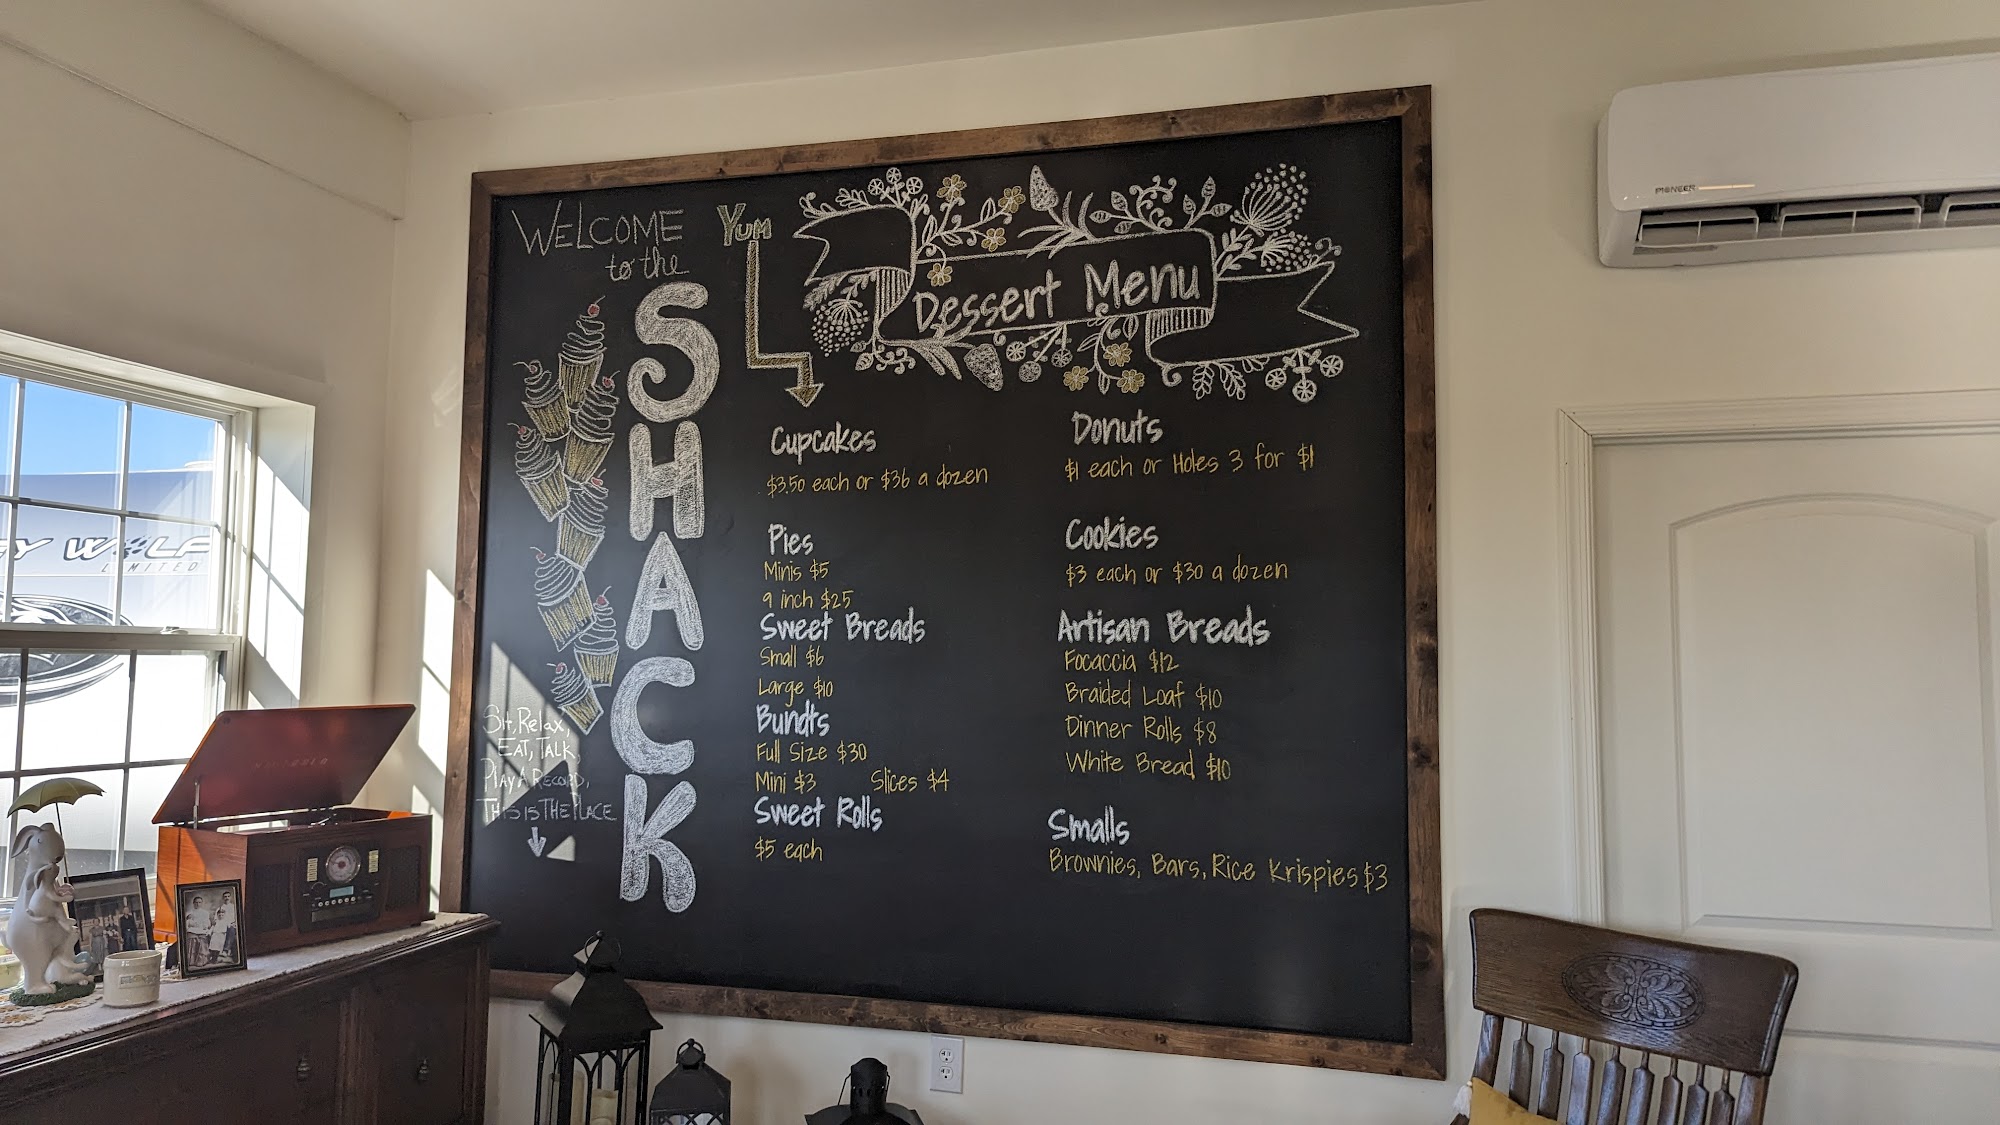 WELCOME
to the
SHACK
YUM
Dessert Menu
Cupcakes
$3.50 each or $36 a dozen
Pies
Minis $5
9 inch $25
Sweet Breads
Small $6
Large $10
Bundts
Full Size $30
Mini $3 Slices $4
Sweet Rolls
$5 each
Donuts
$1 each or Holes 3 for $1
Cookies
$3 each or $30 a dozen
Artisan Breads
Focaccia $12
Braided Loaf $10
Dinner Rolls $8
White Bread $10
Smalls
Brownies, Bars, Rice Krispies $3
Sit, Relax,
EAT, TALK,
PLAY A RECORD,
THIS IS THE PLACE
PIONEER
WOLF
LIMITED